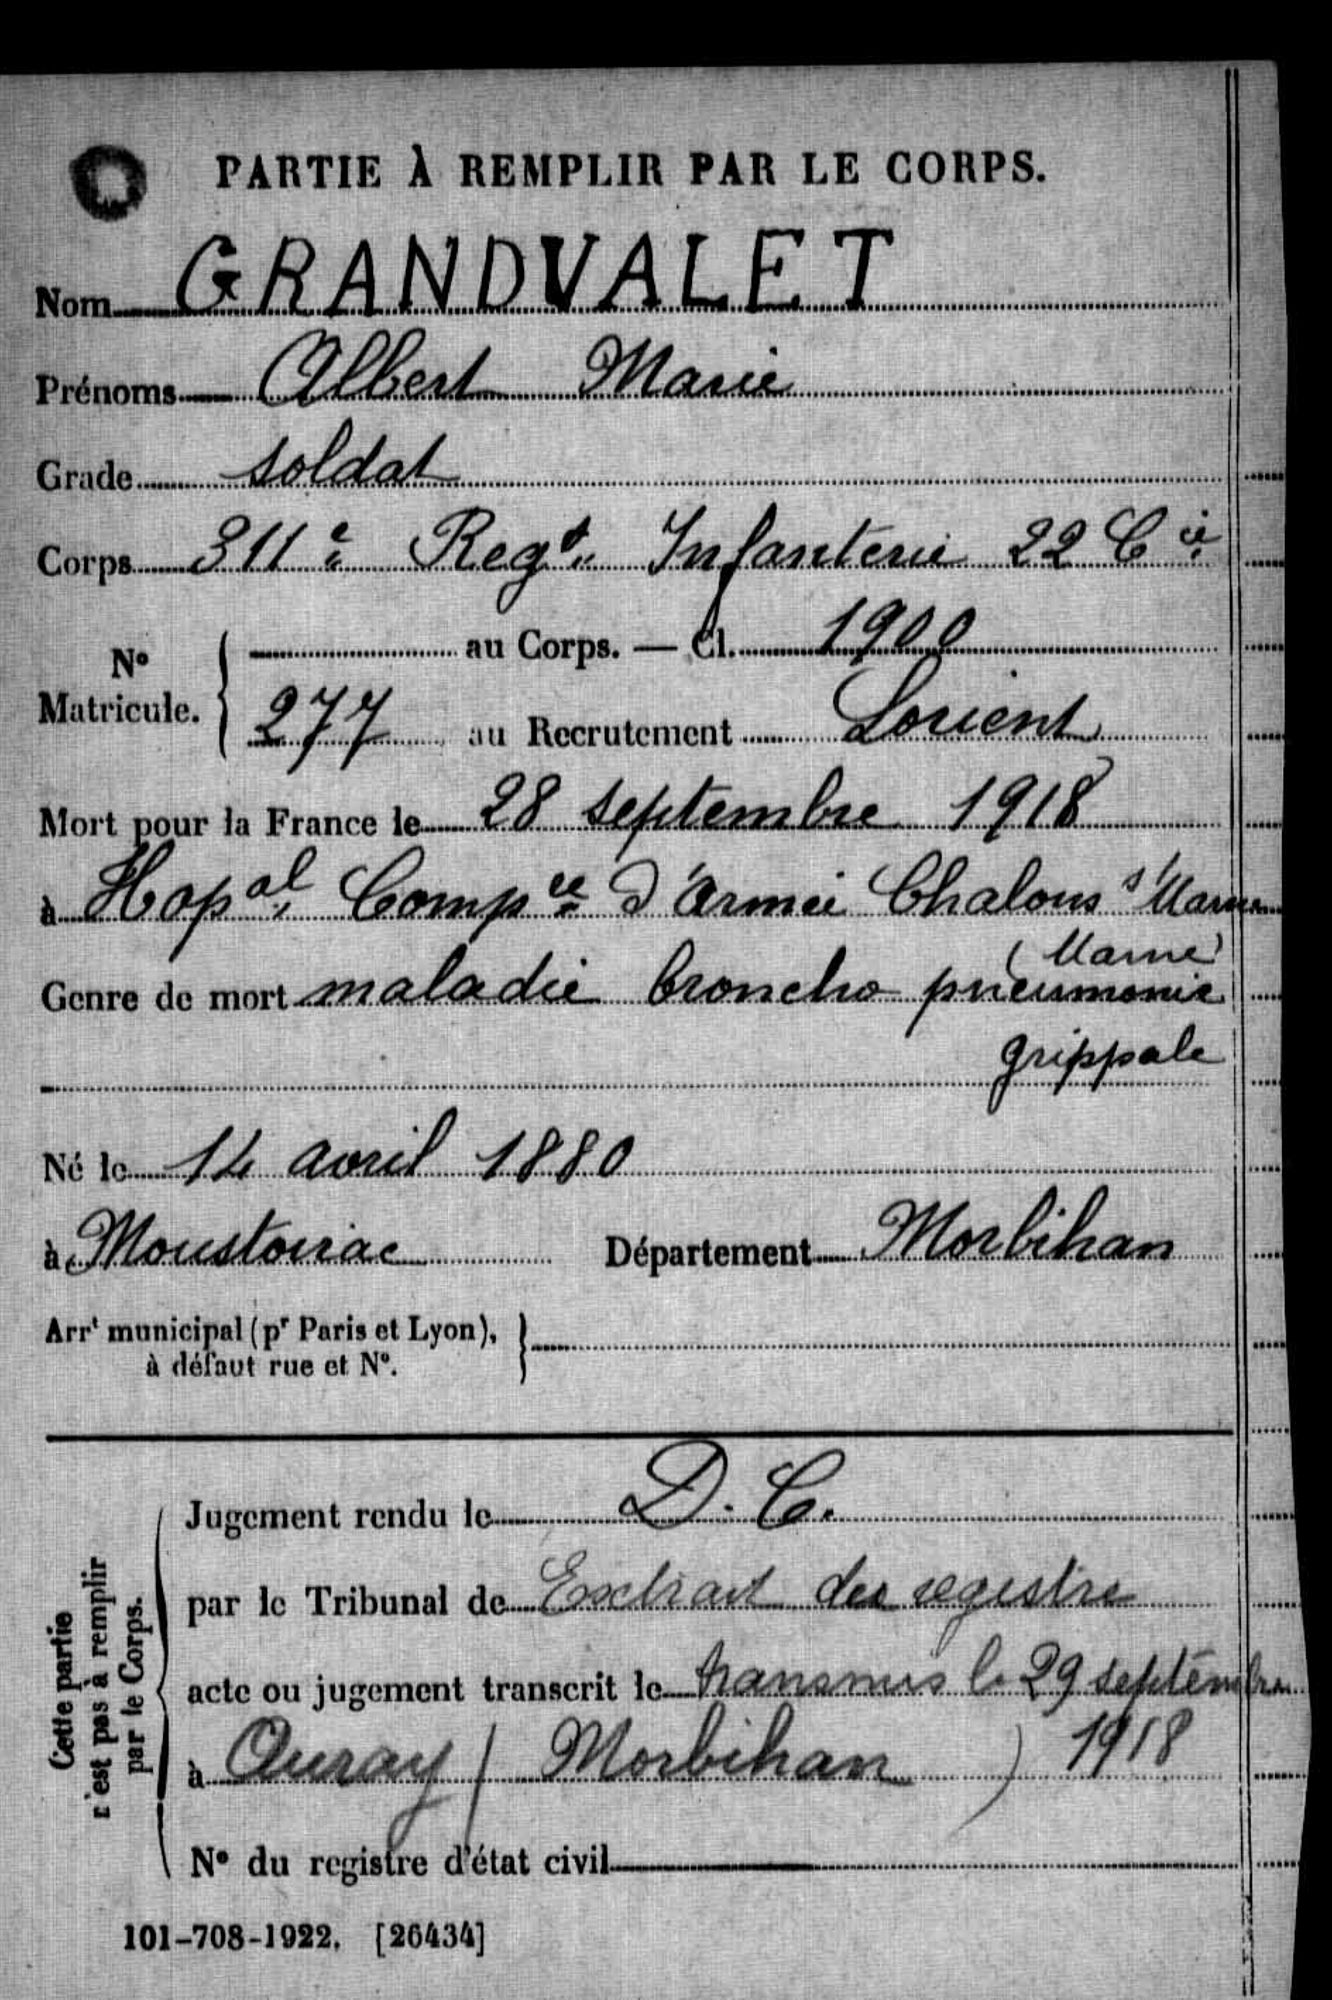 PARTIE À REMPLIR PAR LE CORPS.
Nom GRANDVALET
Prénoms Albert Marie
Grade soldat
Corps 311e Regt Infanterie 22 Cie
No Matricule. { au Corps. — Cl. 1900
277 au Recrutement Lorient
Mort pour la France le 28 septembre 1918
à Hopal Compre d'Armée Chalons s/ Marne
(Marne)
Genre de mort maladie broncho pneumonie
grippale
Né le 14 avril 1880
à Moustoirac Département Morbihan
Arrt municipal (pr Paris et Lyon), }
à défaut rue et No.
Cette partie
n'est pas à remplir
par le Corps.
Jugement rendu le D. C.
par le Tribunal de Extrait des registre
acte ou jugement transcrit le transmis le 29 septembre
1918
à Auray (Morbihan)
No du registre d'état civil
101-708-1922. [26434]